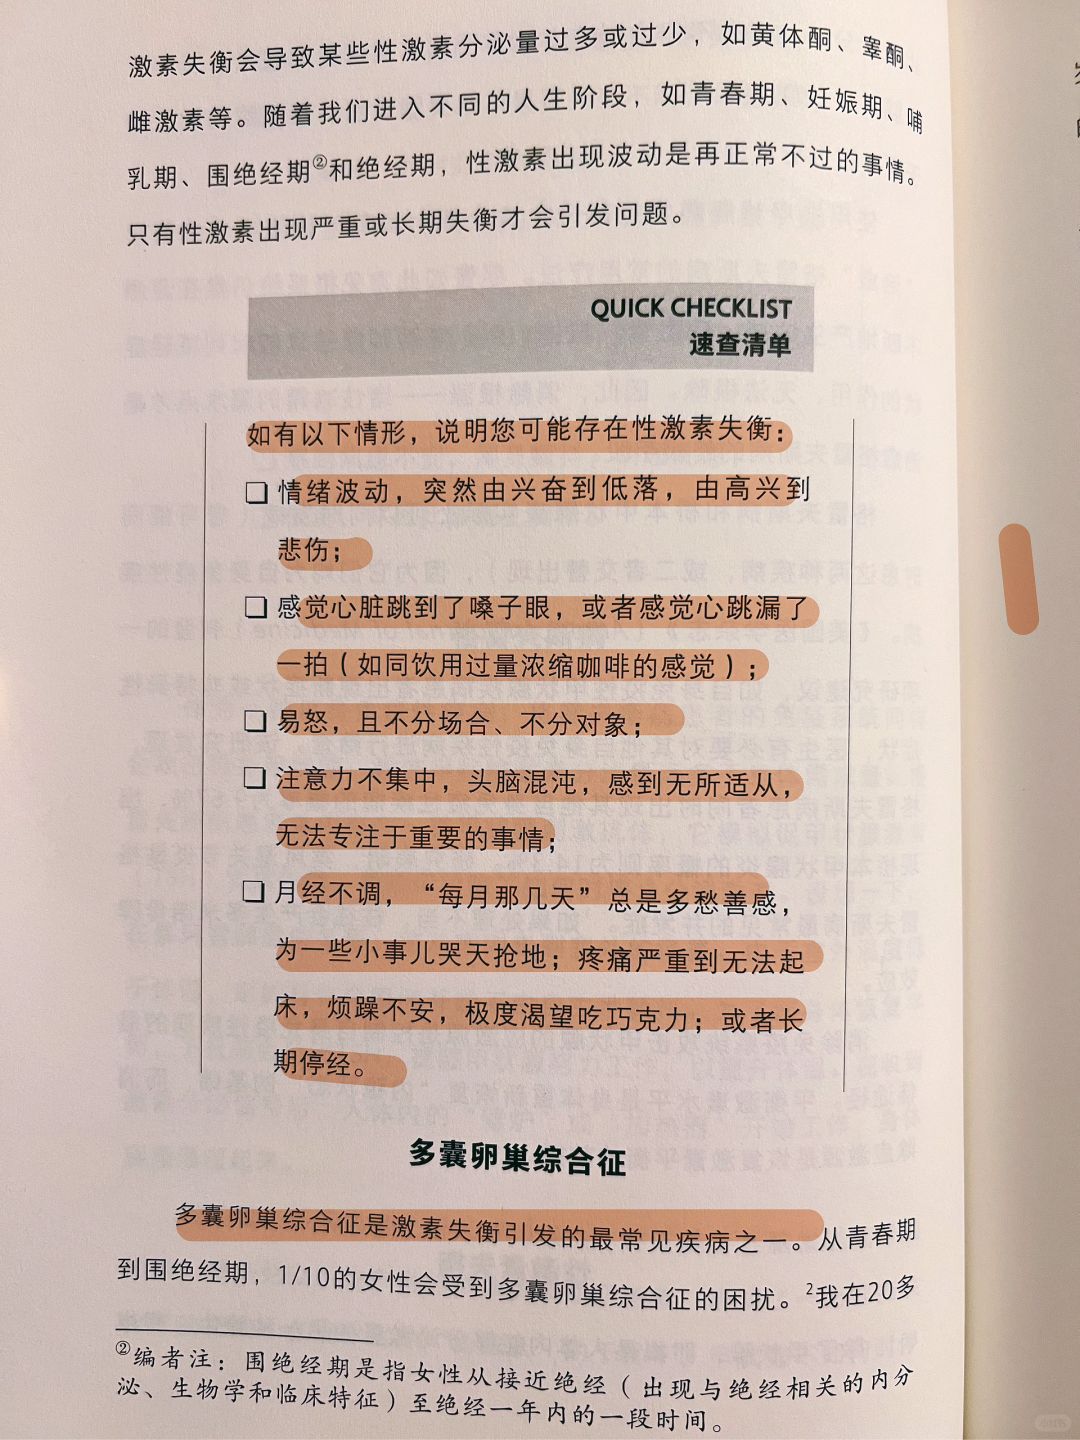 激素失衡会导致某些性激素分泌量过多或过少，如黄体酮、睾酮、
雌激素等。随着我们进入不同的人生阶段，如青春期、妊娠期、哺
乳期、围绝经期②和绝经期，性激素出现波动是再正常不过的事情。
只有性激素出现严重或长期失衡才会引发问题。
QUICK CHECKLIST
速查清单
如有以下情形，说明您可能存在性激素失衡：
❏ 情绪波动，突然由兴奋到低落，由高兴到
悲伤；
❏ 感觉心脏跳到了嗓子眼，或者感觉心跳漏了
一拍（如同饮用过量浓缩咖啡的感觉）；
❏ 易怒，且不分场合、不分对象；
❏ 注意力不集中，头脑混沌，感到无所适从，
无法专注于重要的事情；
❏ 月经不调，“每月那几天”总是多愁善感，
为一些小事儿哭天抢地；疼痛严重到无法起
床，烦躁不安，极度渴望吃巧克力；或者长
期停经。
多囊卵巢综合征
多囊卵巢综合征是激素失衡引发的最常见疾病之一。从青春期
到围绝经期，1/10的女性会受到多囊卵巢综合征的困扰。²我在20多
②编者注：围绝经期是指女性从接近绝经（出现与绝经相关的内分
泌、生物学和临床特征）至绝经一年内的一段时间。